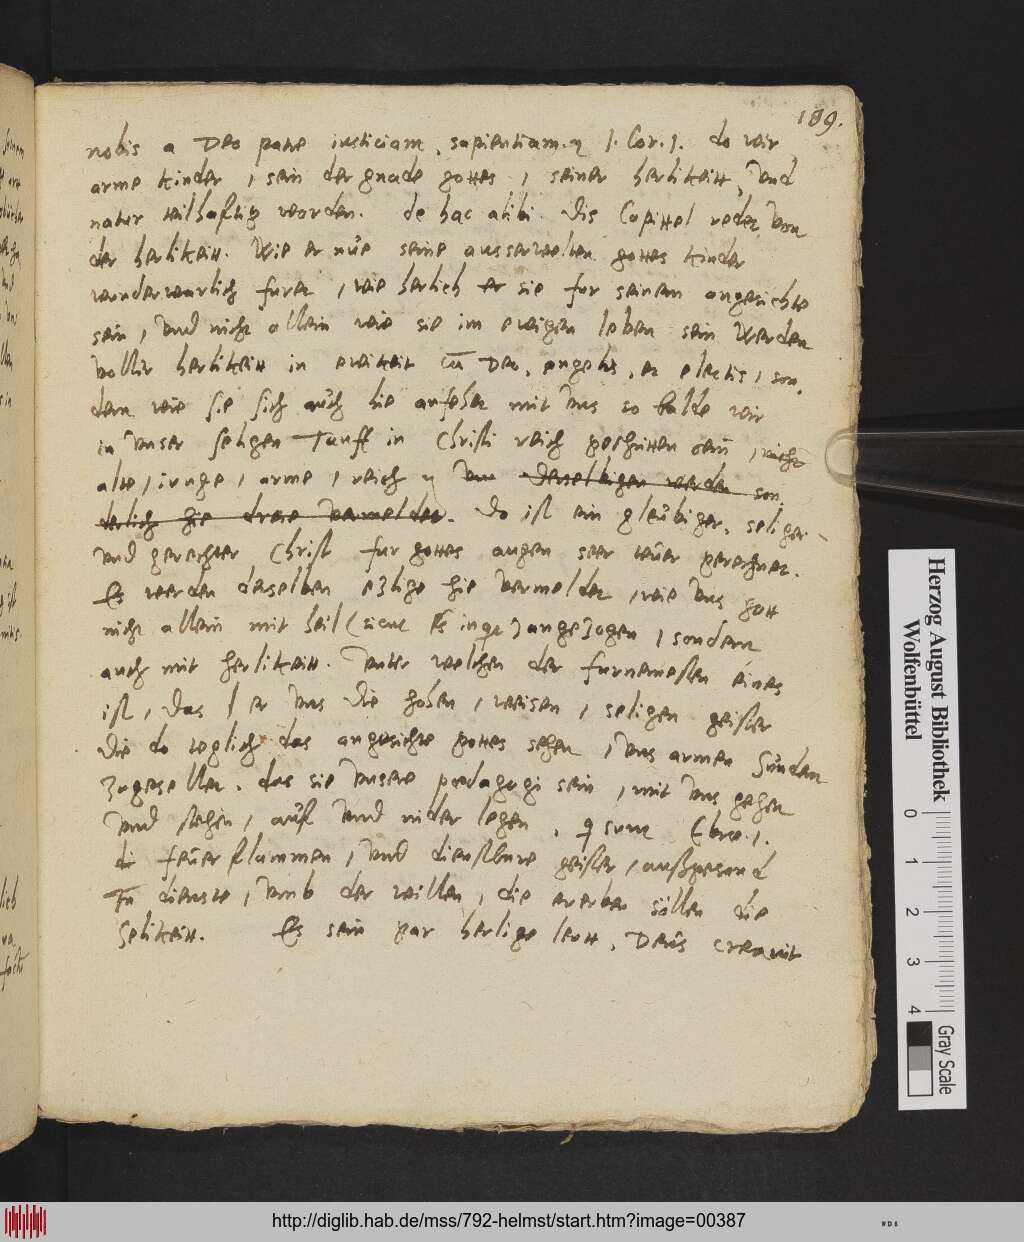 189.
nobis a Deo patre iusticiam, sapientiam. 1. Cor. 1. do wir
arme kinder, sein der gnade gottes, seiner herlikeitt, vnd
natur teilhafftig worden. de hac alibi. Dis Capittel redet von
der herlikeitt. Wie er nůe seine ausserwelten gottes kinder
wunderwarlich furet, wie herlich er sie fur seinem angesichte
sein, vnd nicht allein wie sie im ewigen leben sein werden
voller herlikeitt in ewikeit cū Deo, angelis, et electis, son,
dern wie sie sich auch hie ansehet mit vns so balde wir
in vnser seligen Tauff in Christi reich geschritten sein, nicht
alte, iunge, arme, reich vnd derselbigen werden son,
derlich hie drere vermeldet. Do ist ein gleubiger, seliger
vnd gerechter Christ fur gottes augen seer teuer gerechnet.
Es werden derselben etzlige hie vermeldet, wie vns gott
nicht allein mit heil (sicut angezogen, sondern
auch mit herlikeitt. vnter welchen der furnemesten eines
ist, das er vns die hohen, weisen, seligen geister
die do teglich das angesichte gottes sehen, vns armen Sünden
zugesellet. das sie vnsere pædagogi sein, mit vns gehen
vnd stehen, auff vnd nider legen, sunt Ebre. 1.
di feuerflammen, vnd dienstbare geister, außgesand
zu dienste, vmb der willen, die ererben söllen die
Selikeitt. Es sein gar herlige leutt, Deus creauit
Herzog August Bibliothek
Wolfenbüttel
0 1 2 3 4
Gray Scale
http://diglib.hab.de/mss/792-helmst/start.htm?image=00387